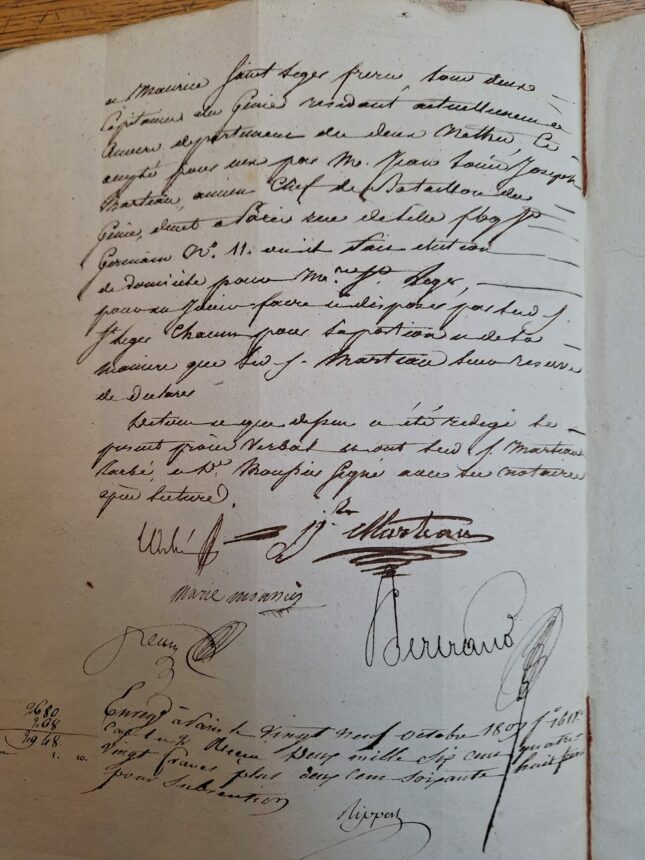 Maurice Saint Leger frere tous deux
Capitaines du Génie residant actuellement à
Anvers departement des deux Nethes, Ce
accepté pour eux par M. Jean Louis Joseph
Marteau, ancien Chef de Bataillon du
Génie, dem.t a Paris rue de Lille fbg S.t
Germain N.o 11. fait election
de domicile pour M.rs S.t Leger,
pour en faire et disposer par led. s.
S.t Leger chacun pour sa portion et de la
maniere que led. s. Marteau se reserve
de declarer
De tout ce que dessus a été redigé le
present procès Verbal et ont led. s. Marteau
et D.e Mounier signé avec les notaires
après lecture.
Marteau
marie mounier
Bertrand
2680
268
2948
Enreg.é à Paris le vingt neuf octobre 1809 f.o 161 r.o
Reçu deux mille six cent quatre
vingt francs plus deux cent soixante huit francs
pour subvention
Rippert